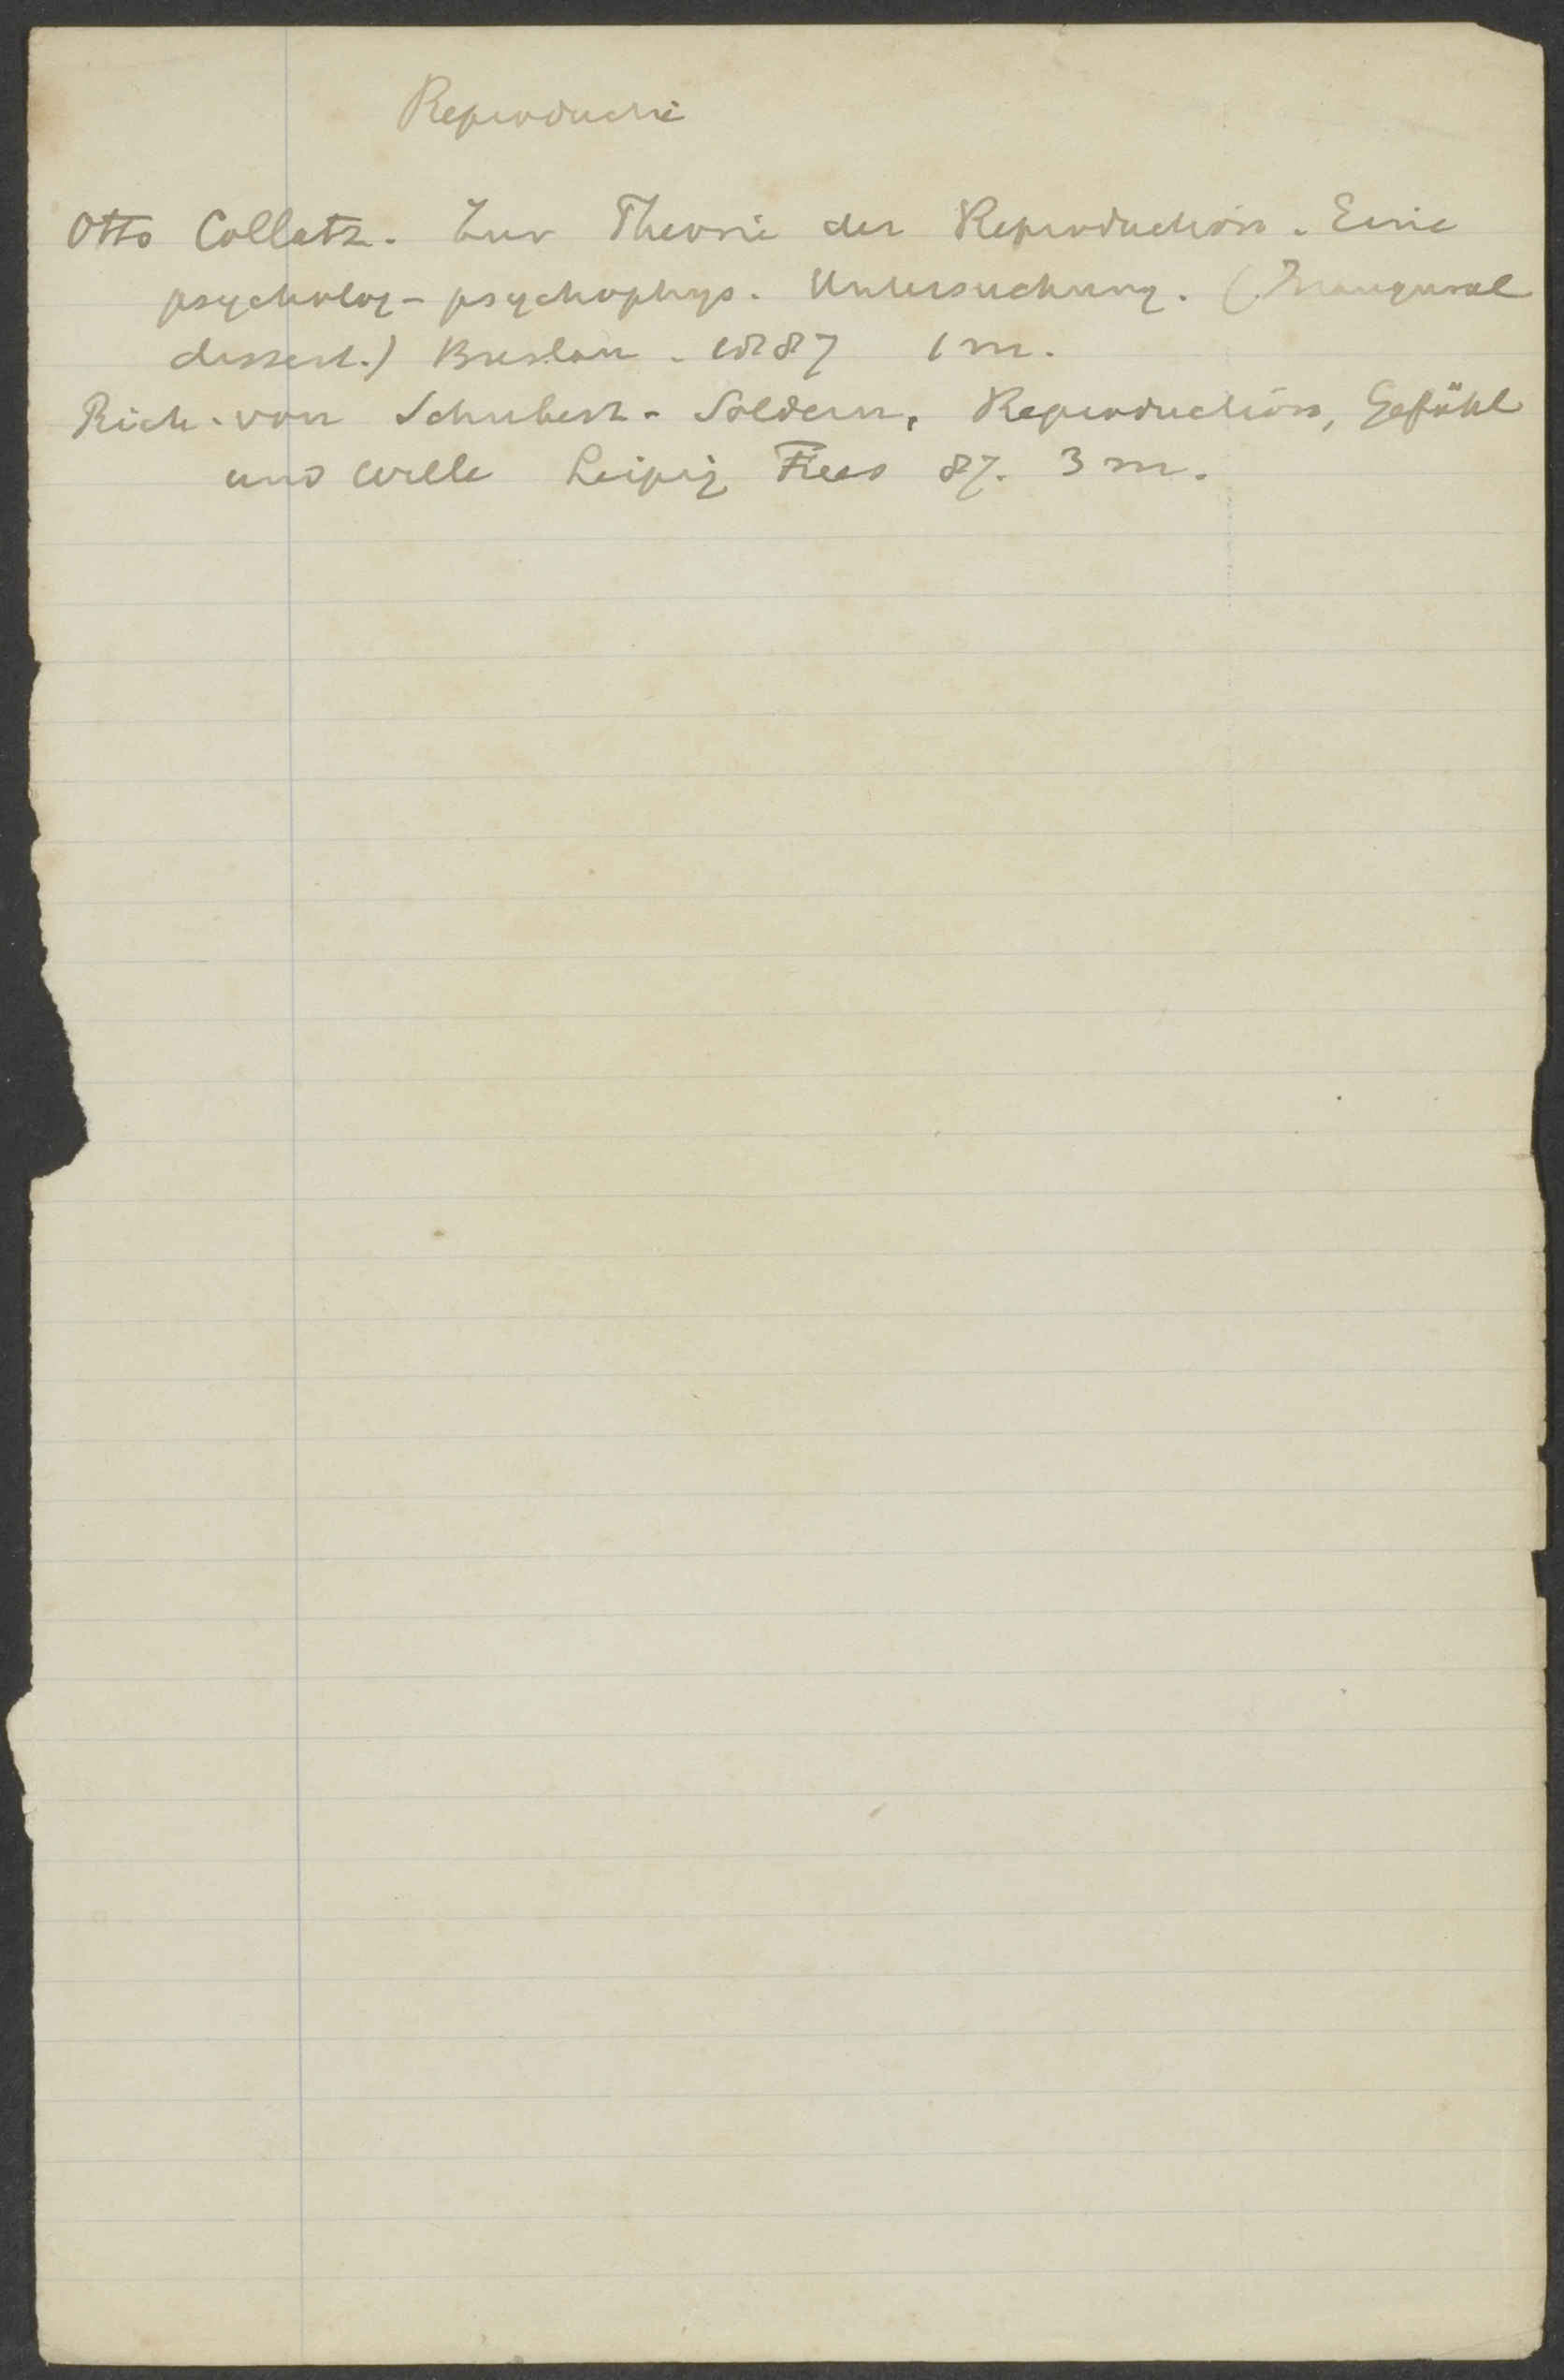 Reproductie
Otto Collatz. Zur Theorie der Reproduction. Eine
psycholog-psychophys. Untersuchung. (Inaugural
dissert.) Breslau. 1887 1 m.
Rich. von Schubert-Soldern, Reproduction, Gefühl
und Wille Leipzig Fues 87. 3 m.